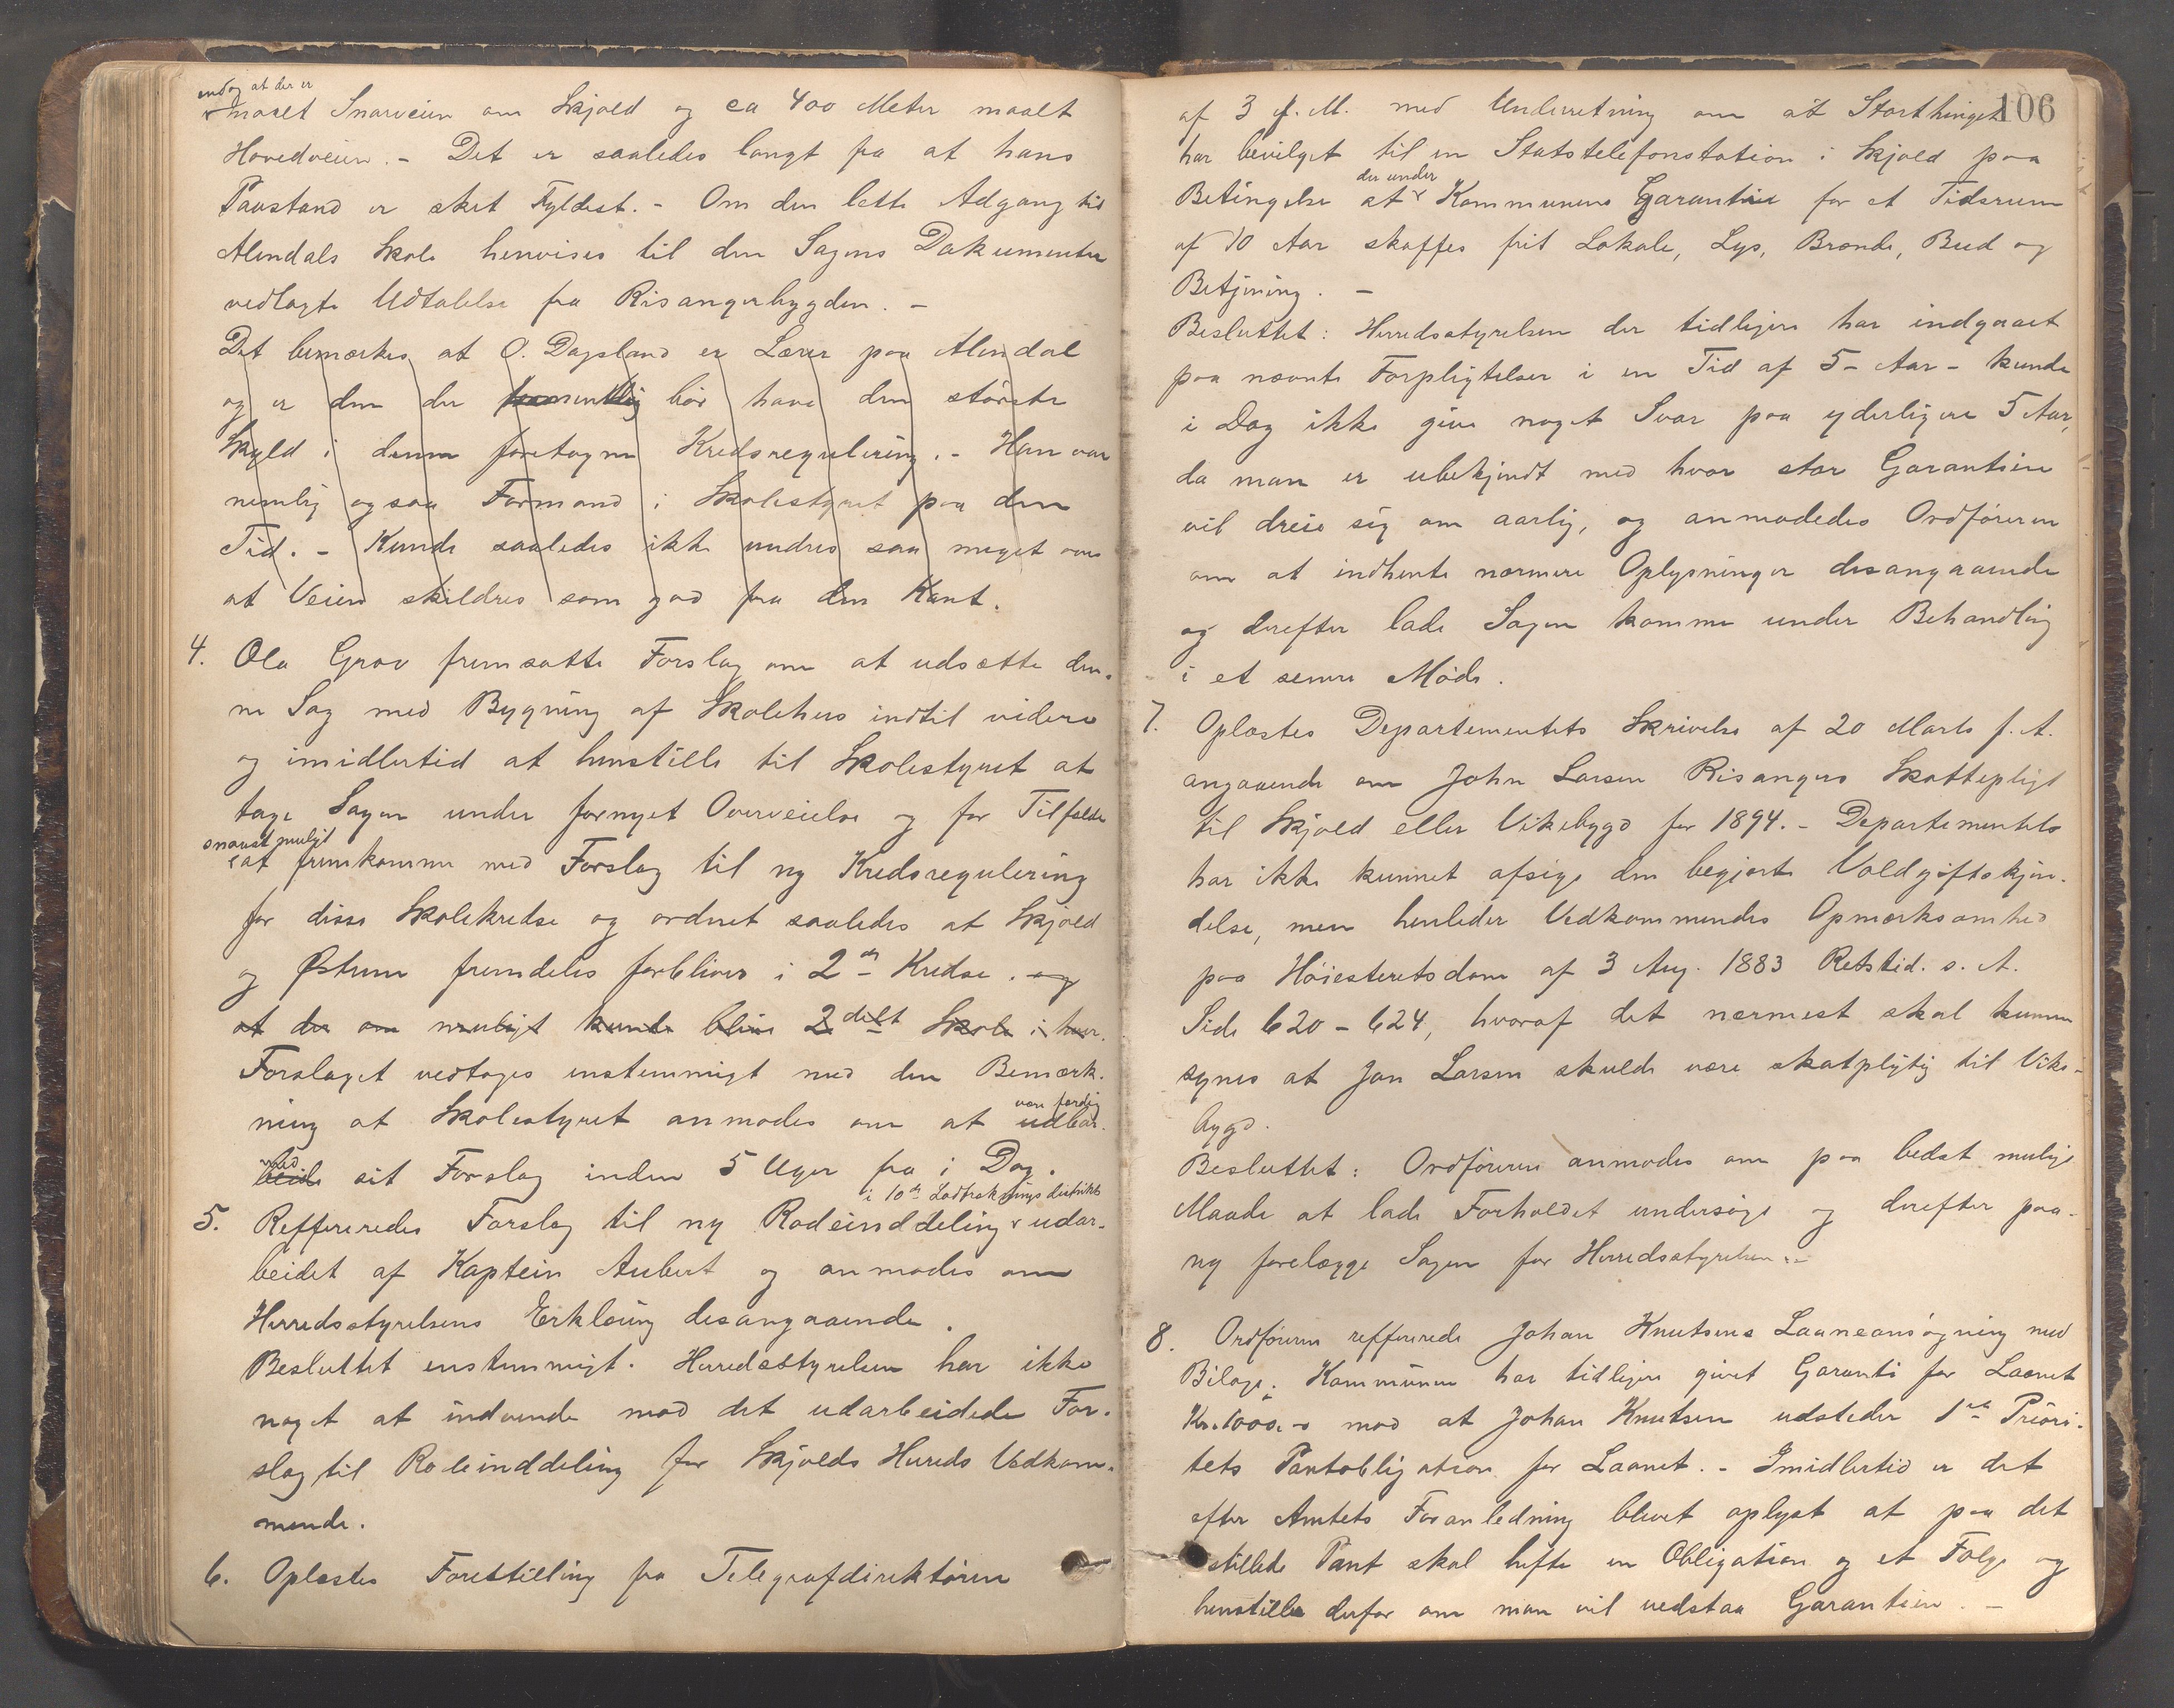 endog at der er
maalt Snarveien om Skjold og ca 400 Meter maalt
Hovedveien. - Det er saaledes langt fra at hans
Paastand er sket Fyldest. - Om den lette Adgang til
Alendals Skole henvises til den Sagens Dokumenter
vedlagte Udtalelse fra Risangerbygden. -
Det bemærkes at O. Dagsland er Lærer paa Alendal
og er den der bør have den største
Skyld i denne foretagne Kredsregulering. - Han var
nemlig ogsaa Formand i Skolestyret paa den
Tid. - Kunde saaledes ikke undres saa meget over
at Veien skildres som god fra den Kant.
4. Ola Grov fremsatte Forslag om at udsætte den-
ne Sag med Bygning af Skolehus indtil videre
og imidlertid at henstille til Skolestyret at
tage Sagen under fornyet Overveielse og for Tilfælde
snarest muligt
at fremkomme med Forslag til ny Kredsregulering
for disse Skolekredse og ordnet saaledes at Skjold
og Østrem fremdeles forbliver i 2de Kredse. og
at der om muligt kunde blive 2delt Skole i hver.
Forslaget vedtoges enstemmigt med den Bemærk-
ning at Skolestyret anmodes om at udbar-
være færdig
med
beide sit Forslag inden 5 Uger fra i Dag.
i 10de Lodtrækningsdistrikt
5. Reffereredes Forslag til ny Rodeinddeling udar-
beidet af Kaptein Aubert og anmodes om
Herredsstyrelsens Erklæring desangaaende.
Besluttet enstemmigt. Herredsstyrelsen har ikke
noget at indvende mod det udarbeidede For-
slag til Rodeinddeling for Skjolds Hereds Vedkom-
mende.
6. Oplæstes Forestilling fra Telegrafdirektøren
106
af 3 f. M. med Underretning om at Storthinget
har bevilget til en Statstelefonstation i Skjold paa
der under
Betingelse at Kommunens Garantie for et Tidsrum
af 10 Aar skaffes frit Lokale, Lys, Brænde, Bud og
Betjening. -
Besluttet: Herredsstyrelsen der tidligere har indgaaet
paa nævnte Forpligtelser i en Tid af 5 - Aar - kunde
i Dag ikke give noget Svar paa yderligere 5 Aar,
da man er ubekjendt med hvor stor Garantien
vil dreie sig om aarlig, og anmodedes Ordføreren
om at indhente nærmere Oplysninger desangaaende
og derefter lade Sagen komme under Behandling
i et senere Møde.
7. Oplæstes Departementets Skrivelse af 20 Marts f. A.
angaaende om John Larsen Risangers Skattepligt
til Skjold eller Vikebygd for 1894. - Departementets
har ikke kunnet afsige den begjærte Voldgiftskjen-
delse, men henleder Vedkommendes Opmærksomhed
paa Høiesteretsdom af 3 Aug. 1883 Retstid. s. A.
Side 620 - 624, hvoraf det nærmest skal kunne
synes at Jon Larsen skulde være skatpligtig til Vike-
bygd.
Besluttet: Ordføreren anmodes om paa bedst mulige
Maade at lade Forholdet undersøge og derefter paa-
ny forelægge Sagen for Herredsstyrelsen.-
8. Ordføreren reffererede Johan Knutsens Laaneansøgning med
Bilage. Kommunen har tidligere givet Garanti for Laanet
Kr. 1000.- mod at Johan Knutsen udsteder 1ste Priori-
tets Pantobligation for Laanet. - Imidlertid er det
efter Amtets Foranledning blevet oplyst at paa det
stillede Pant skal hefte en Obligation og et Følge og
henstilles derfor om man vil vedstaa Garantien. -